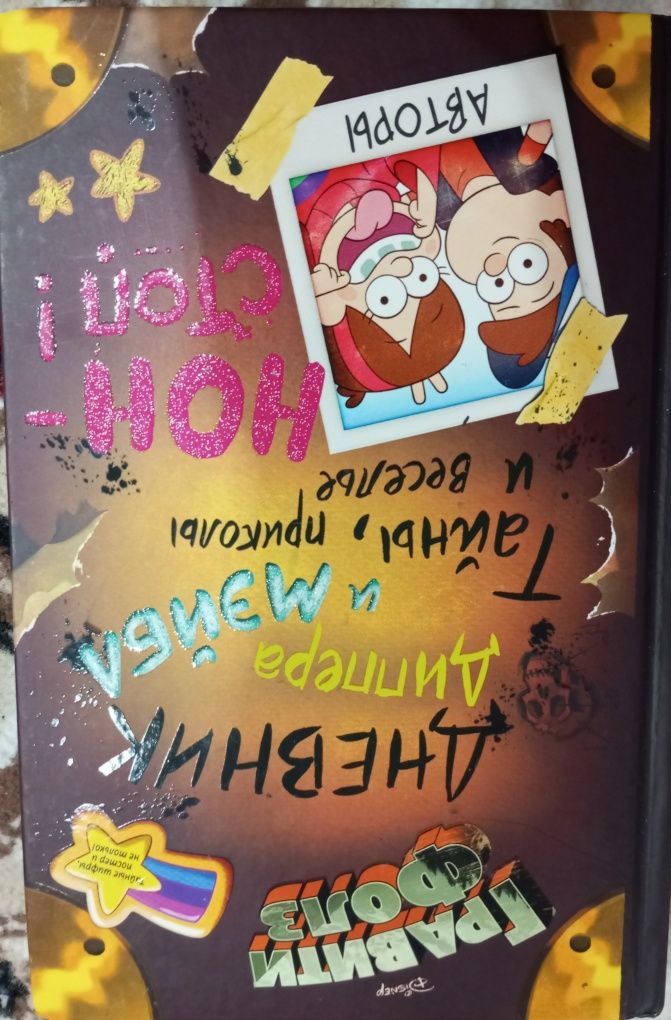 Disney
ГРАВИТИ
ФОЛЗ
Тайные шифры,
постер и
не только!
ДНЕВНИК
Диппера
и МЭЙБЛ
Тайны, приколы
и веселье
НОН-
СТОП!
АВТОРЫ